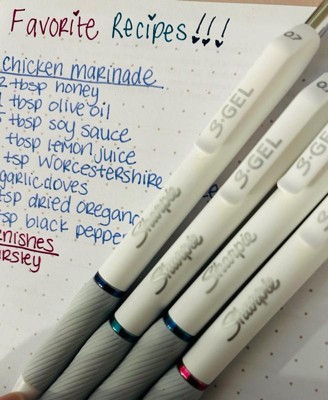 Favorite Recipes!!!
chicken marinade
tbsp honey
tbsp olive oil
tbsp soy sauce
tbsp lemon juice
tsp worcestershire
garlic cloves
tsp dried
black
07
S·GEL
Sharpie
S·GEL
Sharpie
S·GEL
Sharpie
Sharpie